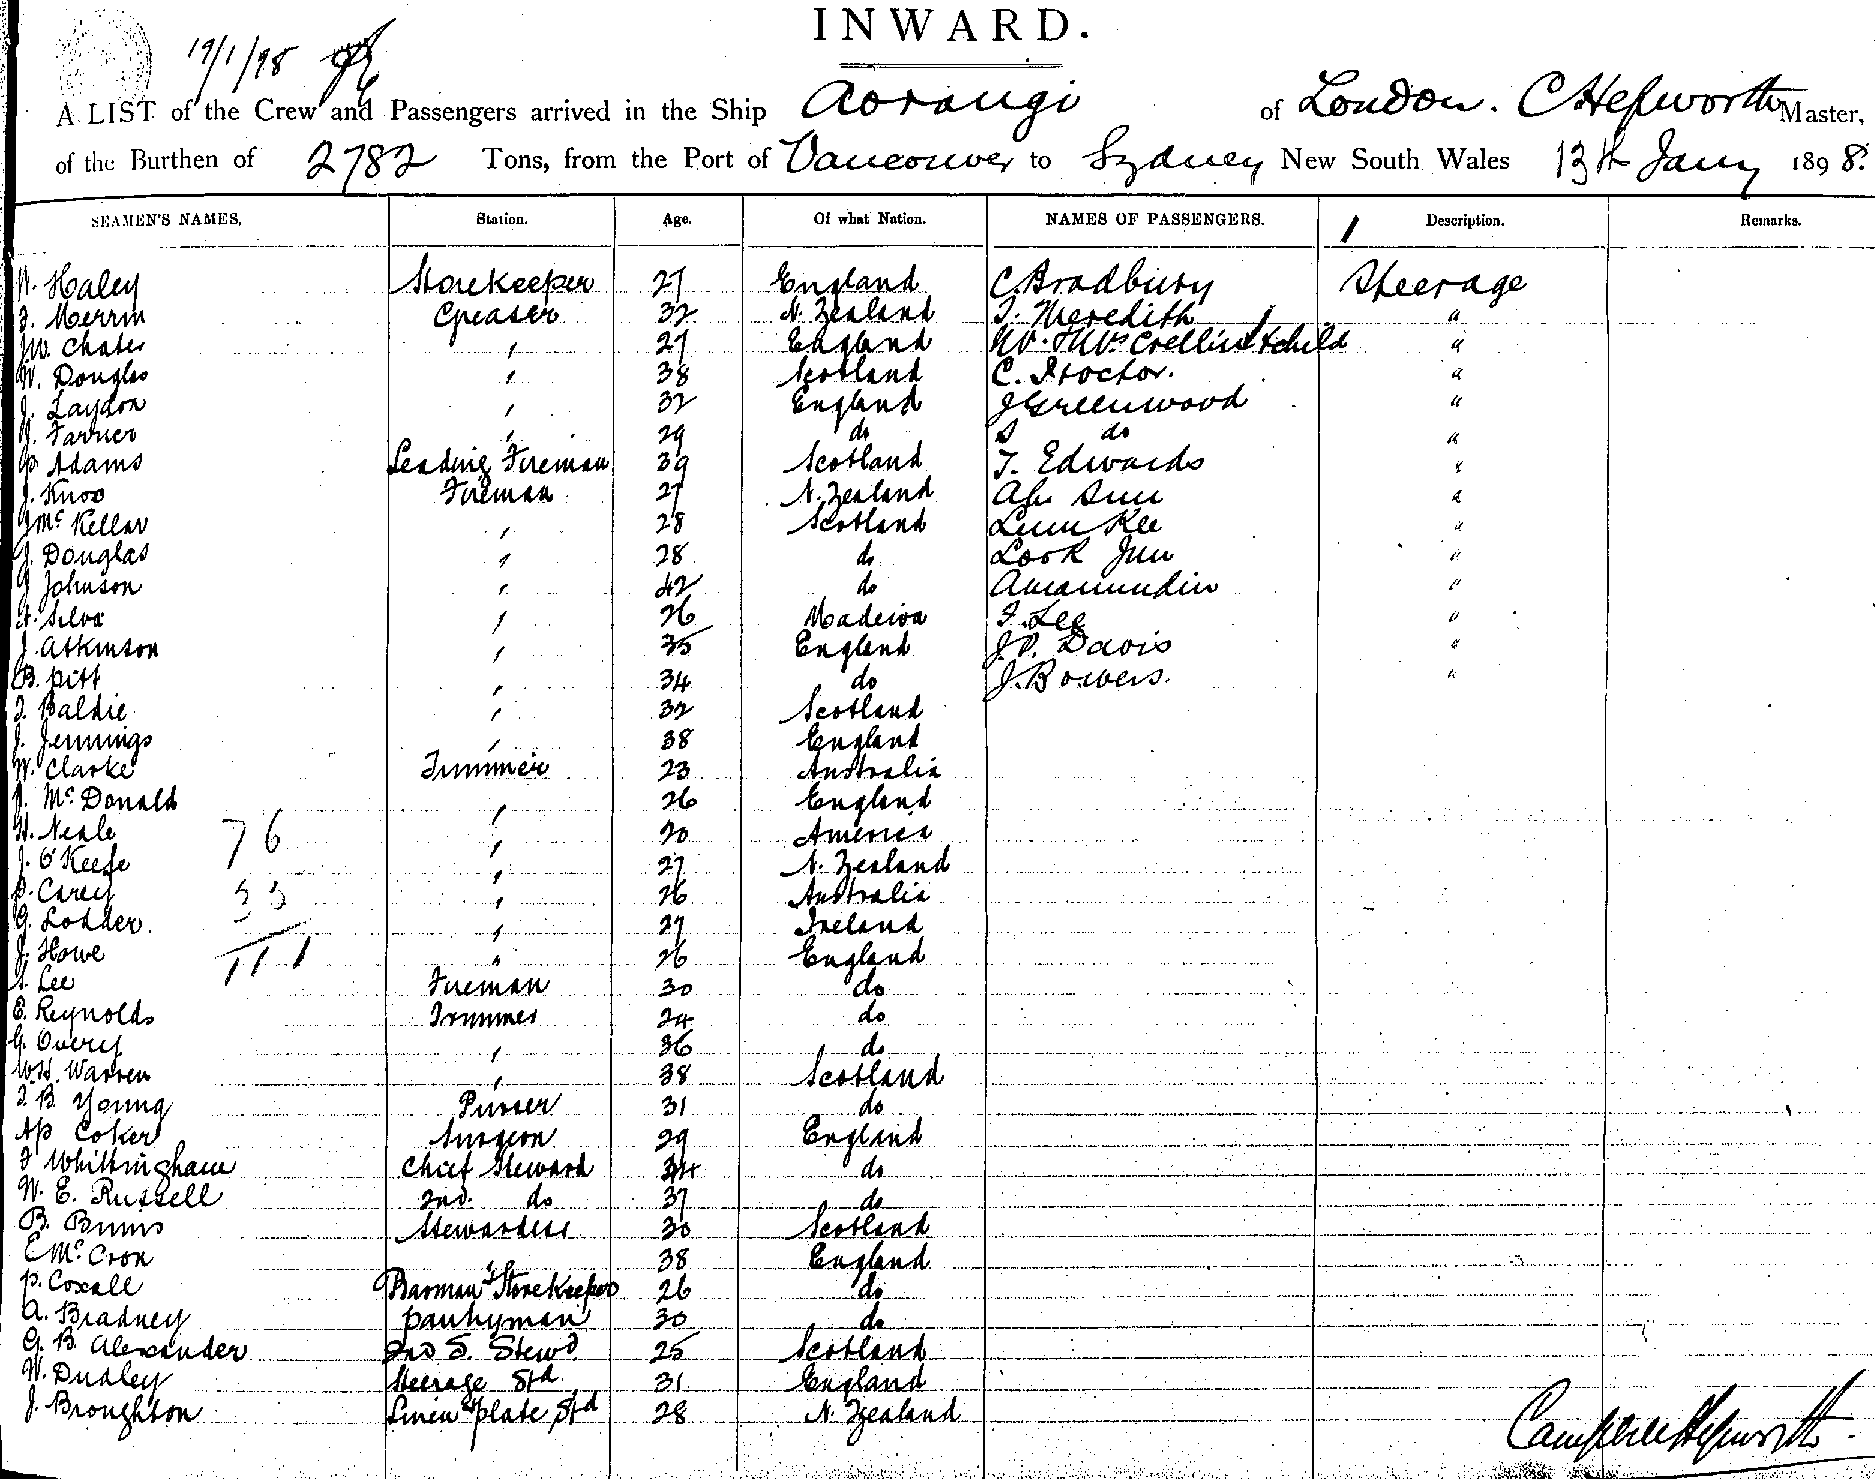 INWARD.
19/1/98
A LIST of the Crew and Passengers arrived in the Ship Aorangi of London. C Hepworth Master,
of the Burthen of 2782 Tons, from the Port of Vancouver to Sydney New South Wales 13th Jany 1898.
SEAMEN'S NAMES, Station. Age. Of what Nation. NAMES OF PASSENGERS. 1 Description. Remarks.
W. Haley Storekeeper 27 England C. Bradbury Steerage
F. Merrin Greaser 32 N. Zealand T. Meredith "
J.W. Chater " 27 England Mr. & Mrs Crellin & child "
W. Douglas " 38 Scotland C. Proctor. "
J. Laydon " 32 England J Greenwood "
Farner " 29 do S do "
P. Adams Leading Fireman 39 Scotland T. Edwards "
J. Knox Fireman 27 N. Zealand Ah Sun "
J McKellar " 28 Scotland Lum Kee "
J. Douglas " 28 do Look Jun "
J Johnson " 42 do "
Silva " 26 Madeira F. Lee "
J. Atkinson " 35 England J.P. Davis "
B. Pitt " 34 do J. Bowers. "
Baldie " 32 Scotland
J. Jennings " 38 England
W. Clarke Trimmer 23 Australia
McDonald " 26 England
H. Neale 76 " 20 America
J. O'Keefe " 27 N. Zealand
Carey 33 " 26 Australia
G. Lodder. " 27 Ireland
J. Howe 111 " 26 England
Lee Fireman 30 do
E. Reynolds Trimmer 24 do
G. Overy " 36 do
W.H. Warren " 38 Scotland
B Young Purser 31 do
Coker Surgeon 29 England
F Whittingham Chief Steward 34 do
W. E. Russell 2nd. do 37 do
B. Binns Stewardess 30 Scotland
E McCron " 38 England
P. Coxall Barman & Storekeeper 26 do
A. Bradney Pantryman 30 do
G. B. Alexander 2nd S. Stewd 25 Scotland
W. Dudley Steerage Std 31 England
J. Broughton Linen & plate Std 28 N. Zealand
Campbell Hepworth